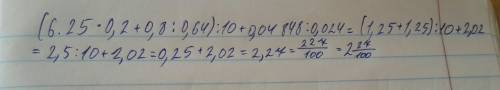 (6.25·0,2+0,8:0,64):10+0,04848:0,024=(1,25+1,25):10+2,02
=2,5:10+2,02=0,25+2,02=2,27=227/100=2 27/100